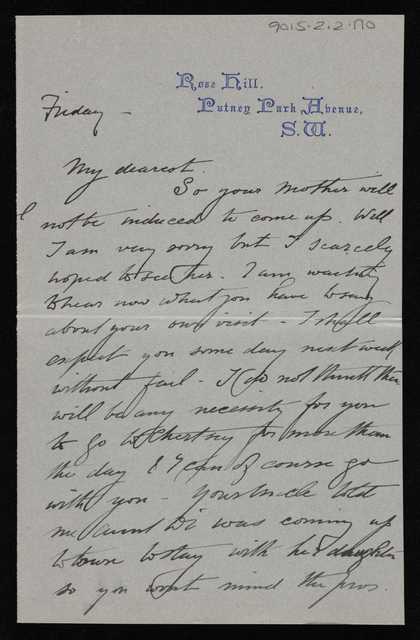 9015-2-2-170
Rose Hill.
Putney Park Avenue,
S.W.
Friday –
My dearest.
So your Mother will
not be induced to come up. Well
I am very sorry but I scarcely
hoped to see her. I am waiting
to hear now what you have to say
about your own visit – I shall
expect you some day next week
without fail – I do not think there
will be any necessity for you
to go to Chertsey for more than
the day & I can of course go
with you – Your Uncle told
me Aunt Di was coming up
to town to stay with her daughter
so you wont mind the pros.